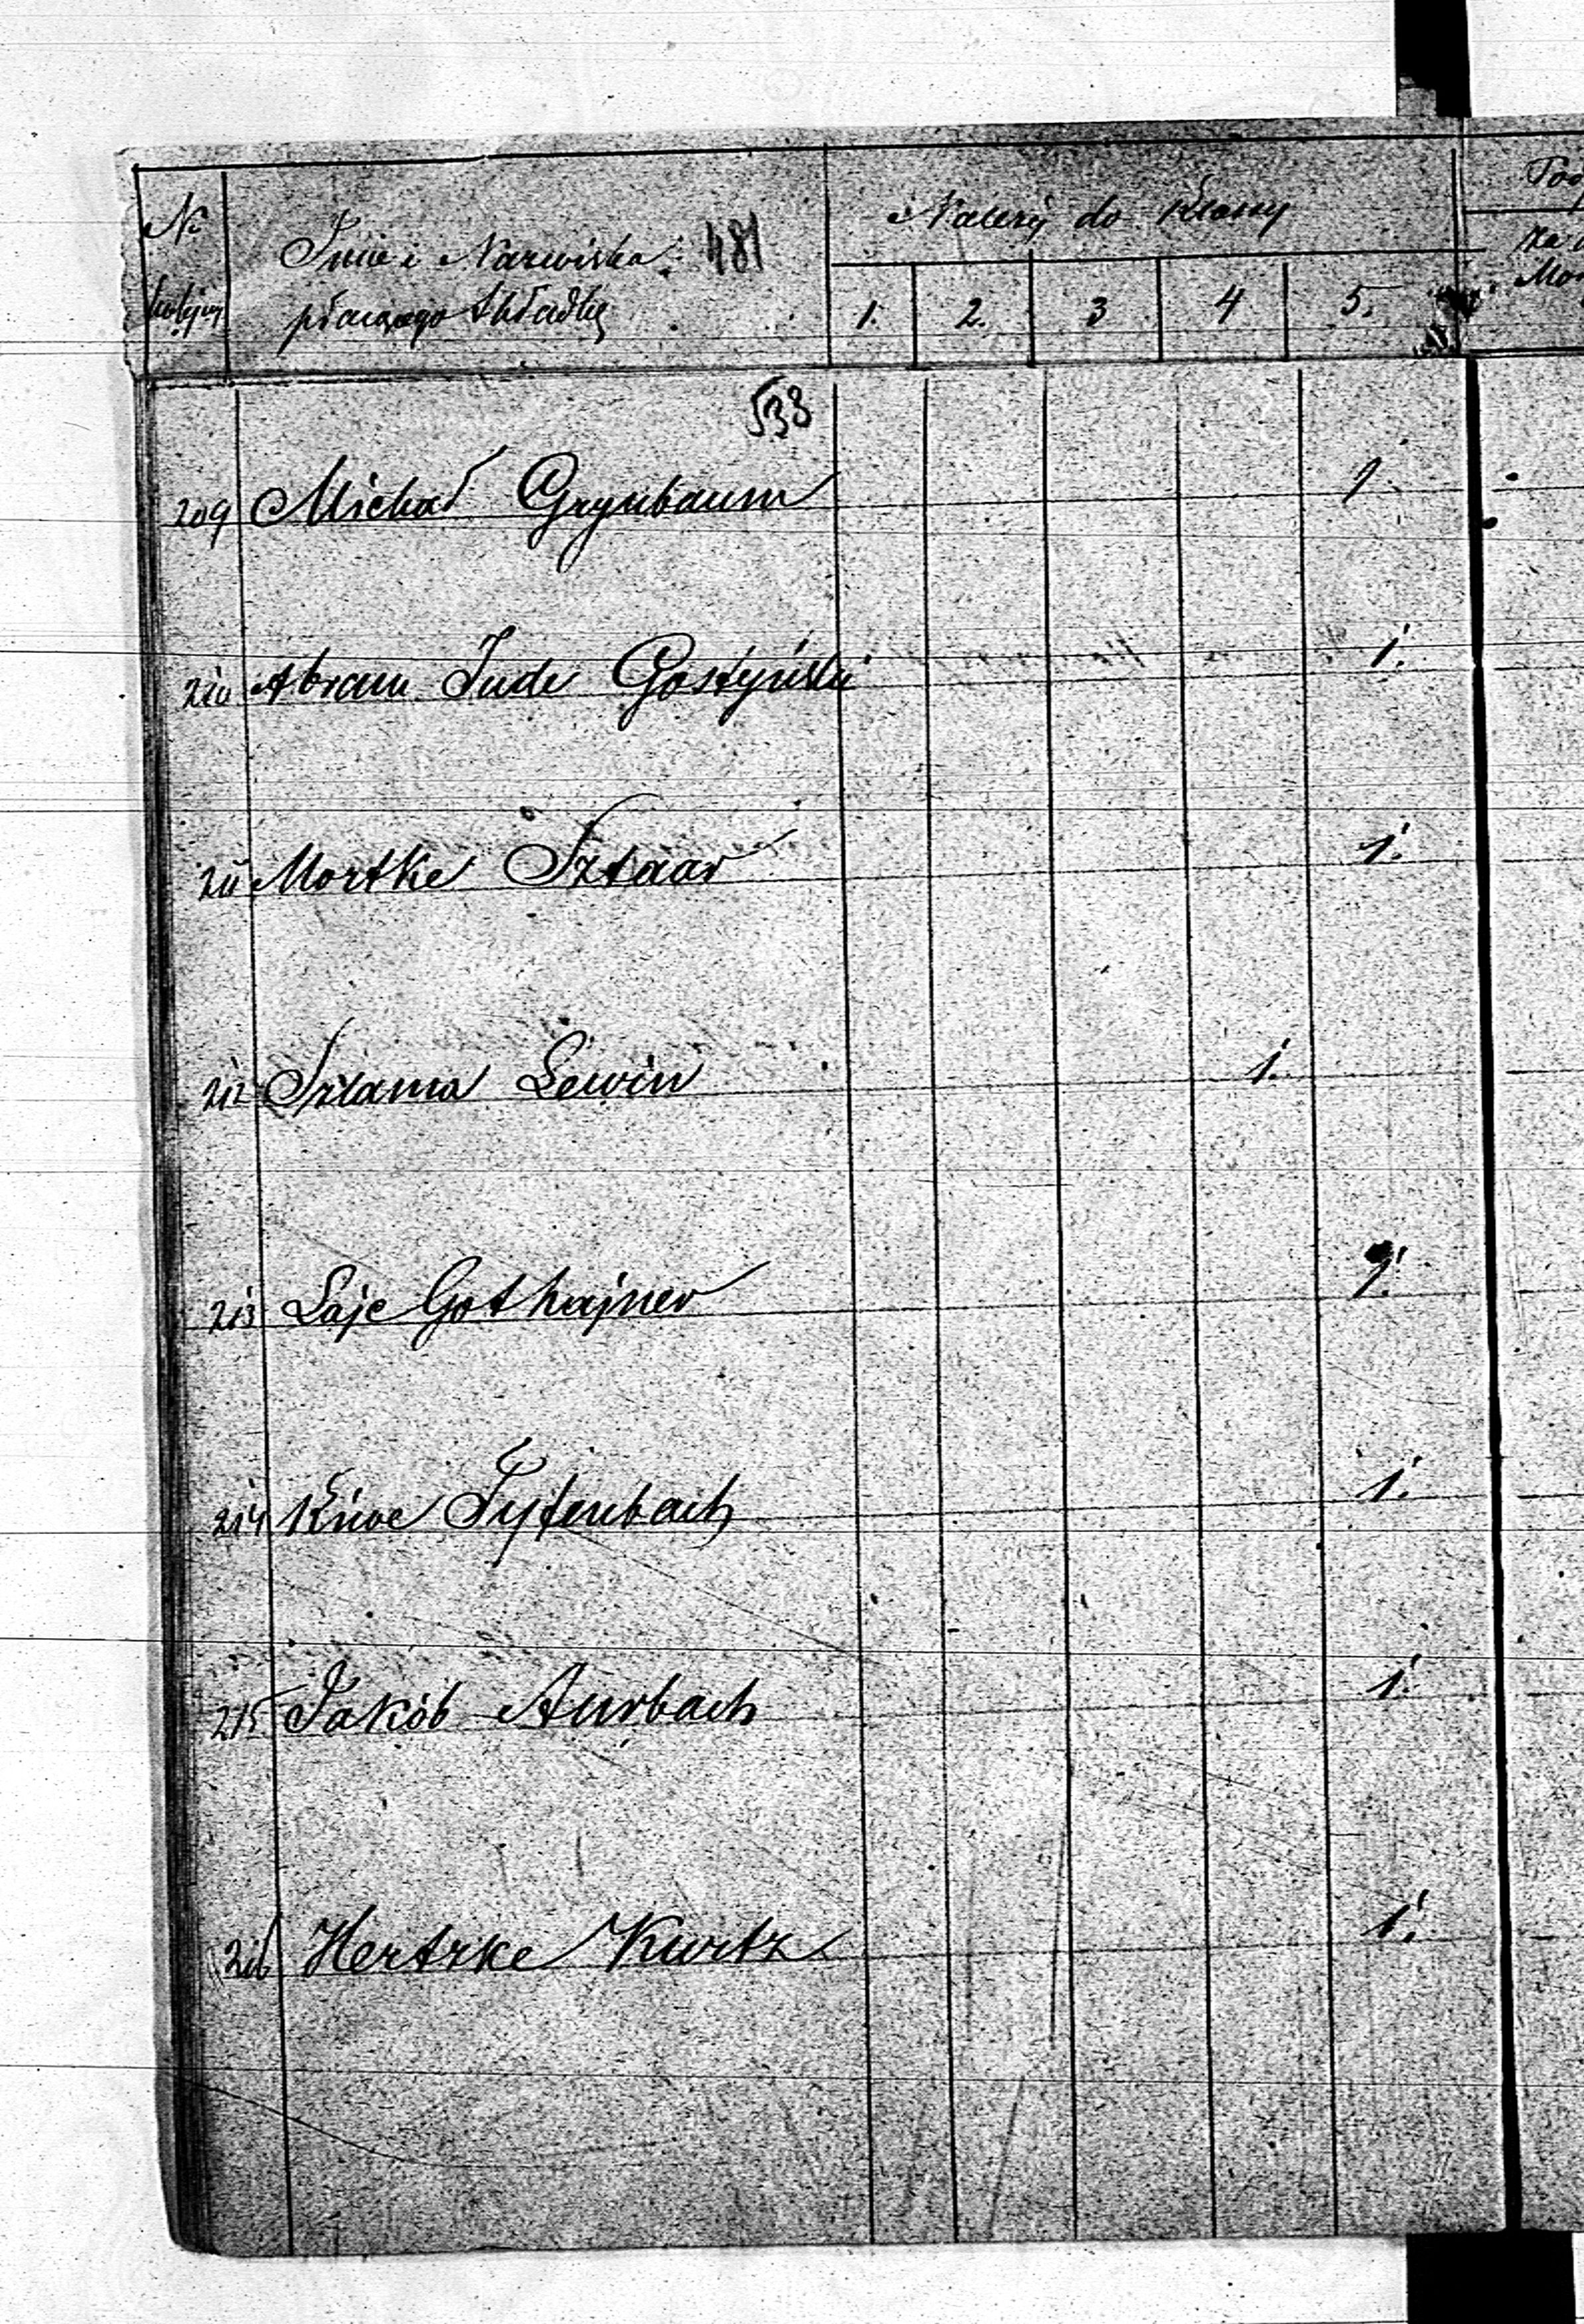 N. kolejny
Imie i Nazwiska 481
płacącego składkę
Należy do Klassy
1. 2. 3 4 5.
538
209 Michał Grynbaum 1
210 Abram Jude Gostyński 1.
211 Mortke Sztaar 1.
212 Szlama Lewin 1.
213 Laje Gothajner 1.
214 Kiwe Tyfenbach 1.
215 Jakób Aurbach 1.
216 Hertzke Kurtz 1.